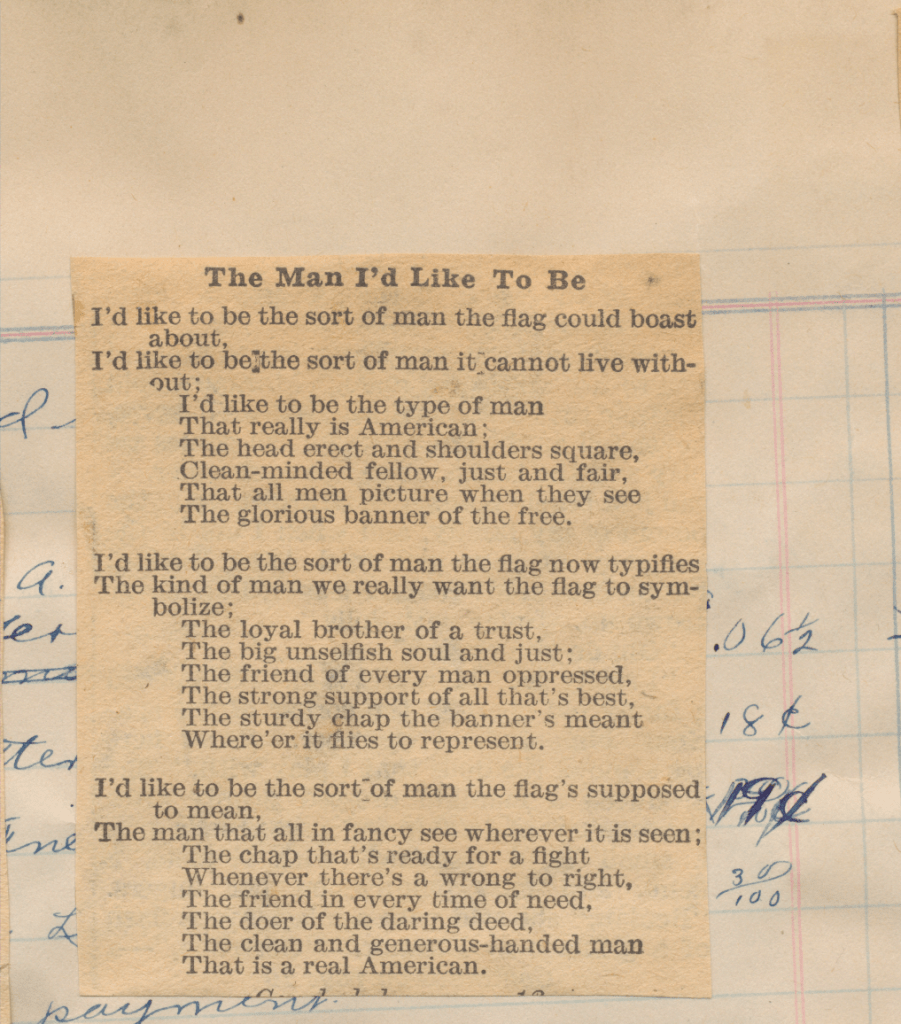 The Man I'd Like To Be
I'd like to be the sort of man the flag could boast
about,
I'd like to be the sort of man it cannot live with-
out;
I'd like to be the type of man
That really is American;
The head erect and shoulders square,
Clean-minded fellow, just and fair,
That all men picture when they see
The glorious banner of the free.
I'd like to be the sort of man the flag now typifies
The kind of man we really want the flag to sym-
bolize;
The loyal brother of a trust,
The big unselfish soul and just;
The friend of every man oppressed,
The strong support of all that's best,
The sturdy chap the banner's meant
Where'er it flies to represent.
I'd like to be the sort of man the flag's supposed
to mean,
The man that all in fancy see wherever it is seen;
The chap that's ready for a fight
Whenever there's a wrong to right,
The friend in every time of need,
The doer of the daring deed,
The clean and generous-handed man
That is a real American.
a.
.06½
18¢
19¢
30/100
payment.